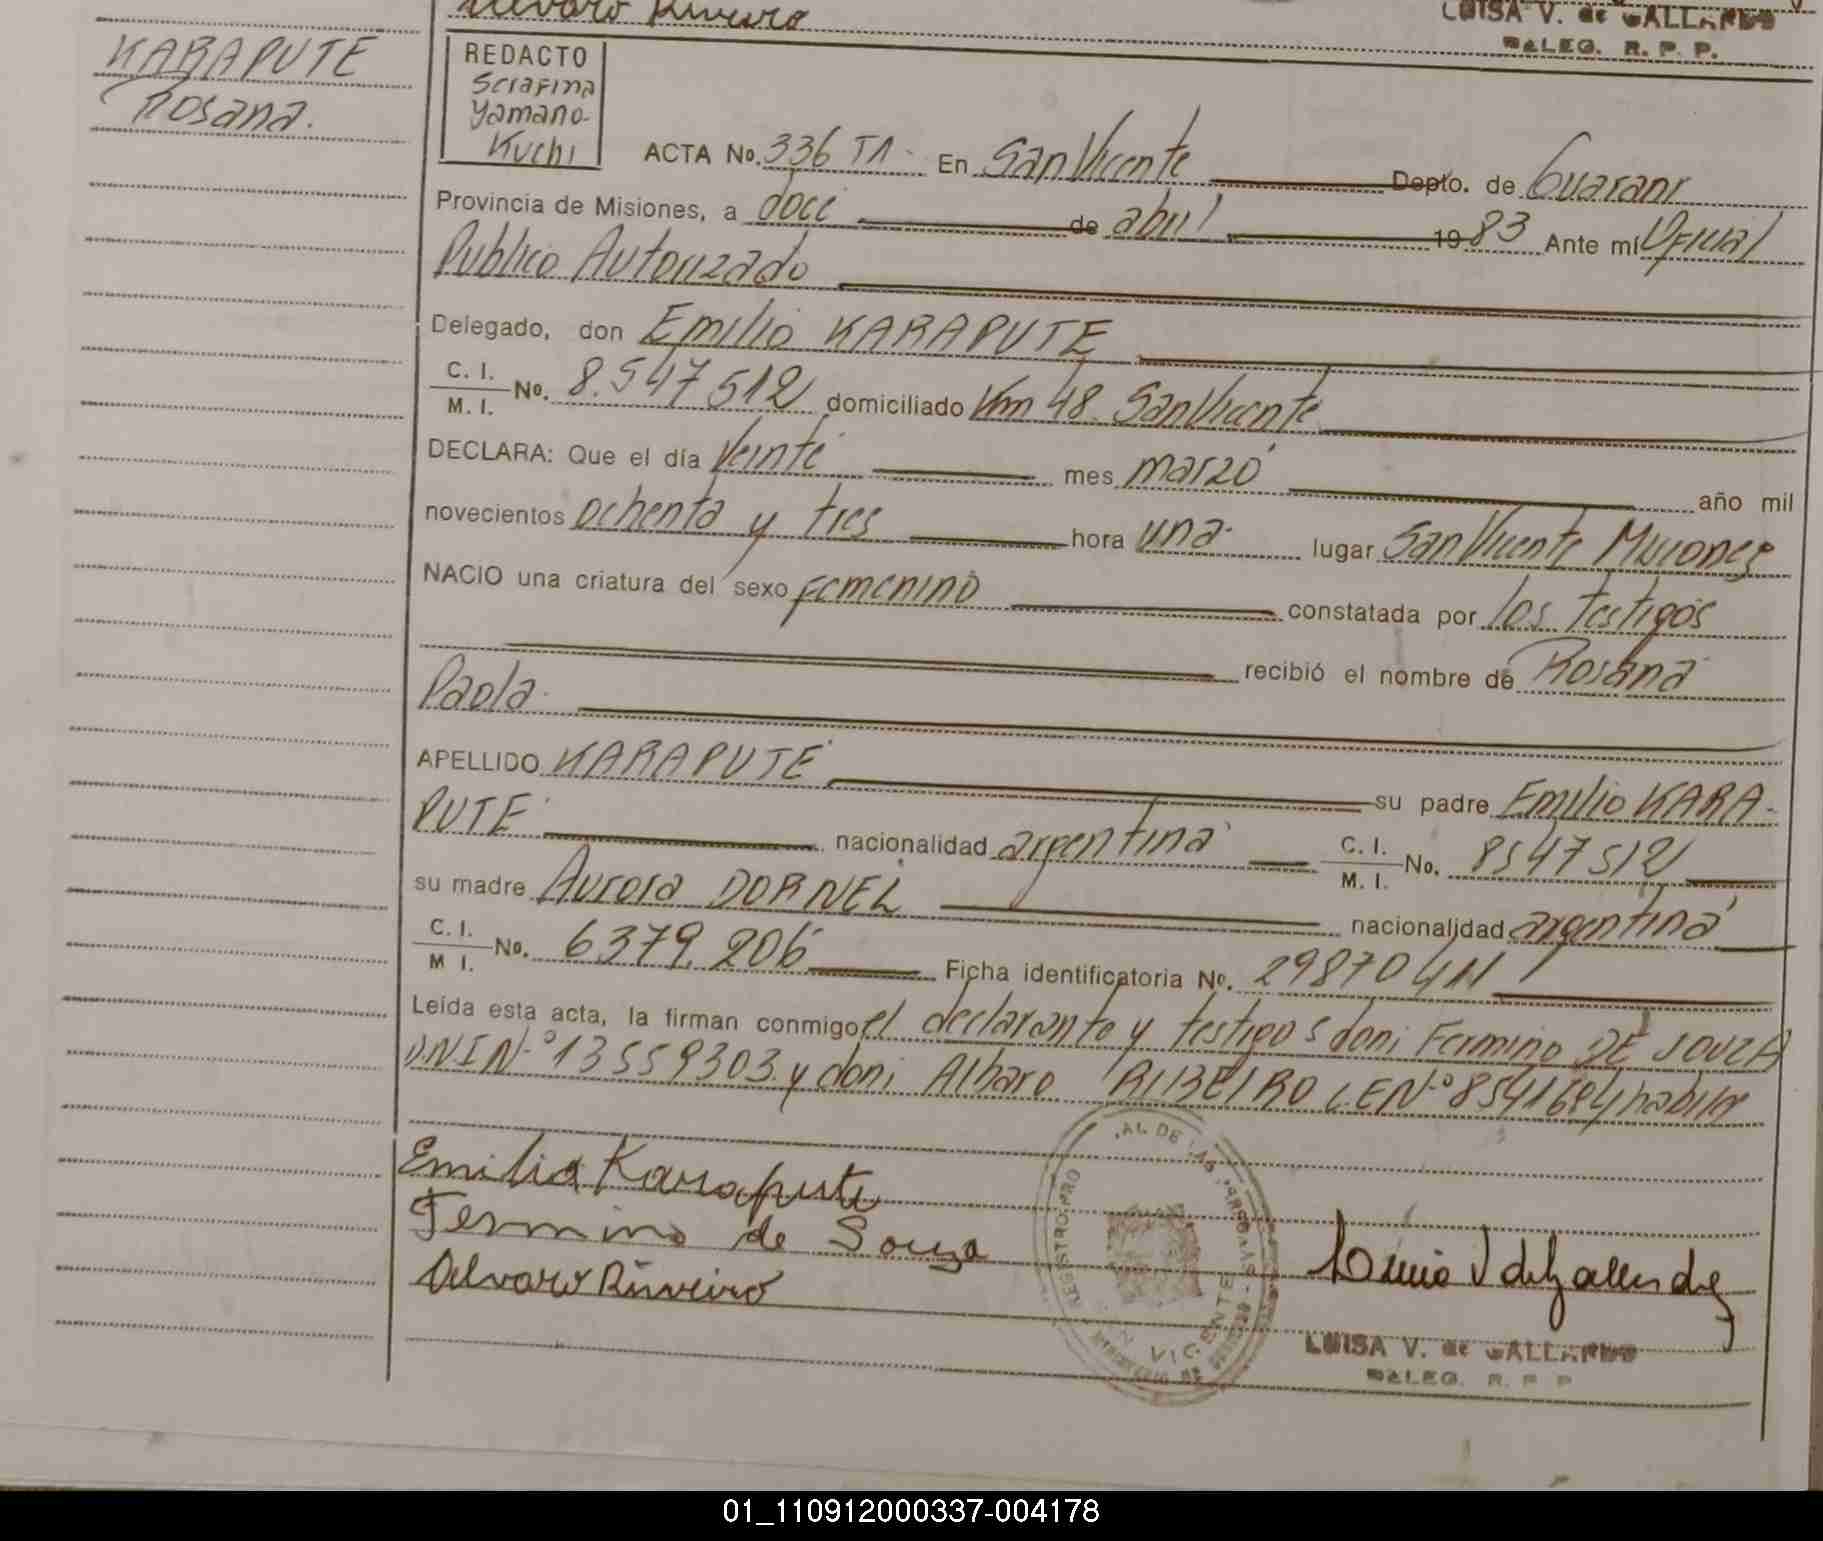 Alvaro Riveiro
LUISA V. de GALLARDO
DALEG. R. P. P.
KARAPUTE
Rosana.
REDACTO
Serafina
Yamano-
Kuchi
ACTA No. 336 T1 - En San Vicente Depto. de Guarani
Provincia de Misiones, a doce de abril 1983 Ante mí Oficial
Publico Autorizado
Delegado, don Emilio KARAPUTE
C. I. / M. I. No. 8.547512 domiciliado Km 48 San Vicente
DECLARA: Que el día veinte mes marzo año mil
novecientos ochenta y tres hora una lugar San Vicente Misiones
NACIO una criatura del sexo femenino constatada por los testigos
recibió el nombre de Rosana
Paola
APELLIDO KARAPUTE su padre Emilio KARA-
PUTE nacionalidad argentina C. I. / M. I. No. 8547512
su madre Aurora DORNEL nacionalidad argentina
C. I. / M I. No. 6379.206 Ficha identificatoria No. 29870411
Leída esta acta, la firman conmigo el declarante y testigos don; Fermino DE SOUZA
DNI N-º 13559303 y don; Albaro RIBEIRO LE Nº 8541684
Emilio Karapute
Fermino de Souza
Alvaro Riveiro
REGISTRO PRO AL DE LAS PERSONAS
VICENTE
LUISA V. de GALLARDO
DALEG. R. P P
01_110912000337-004178